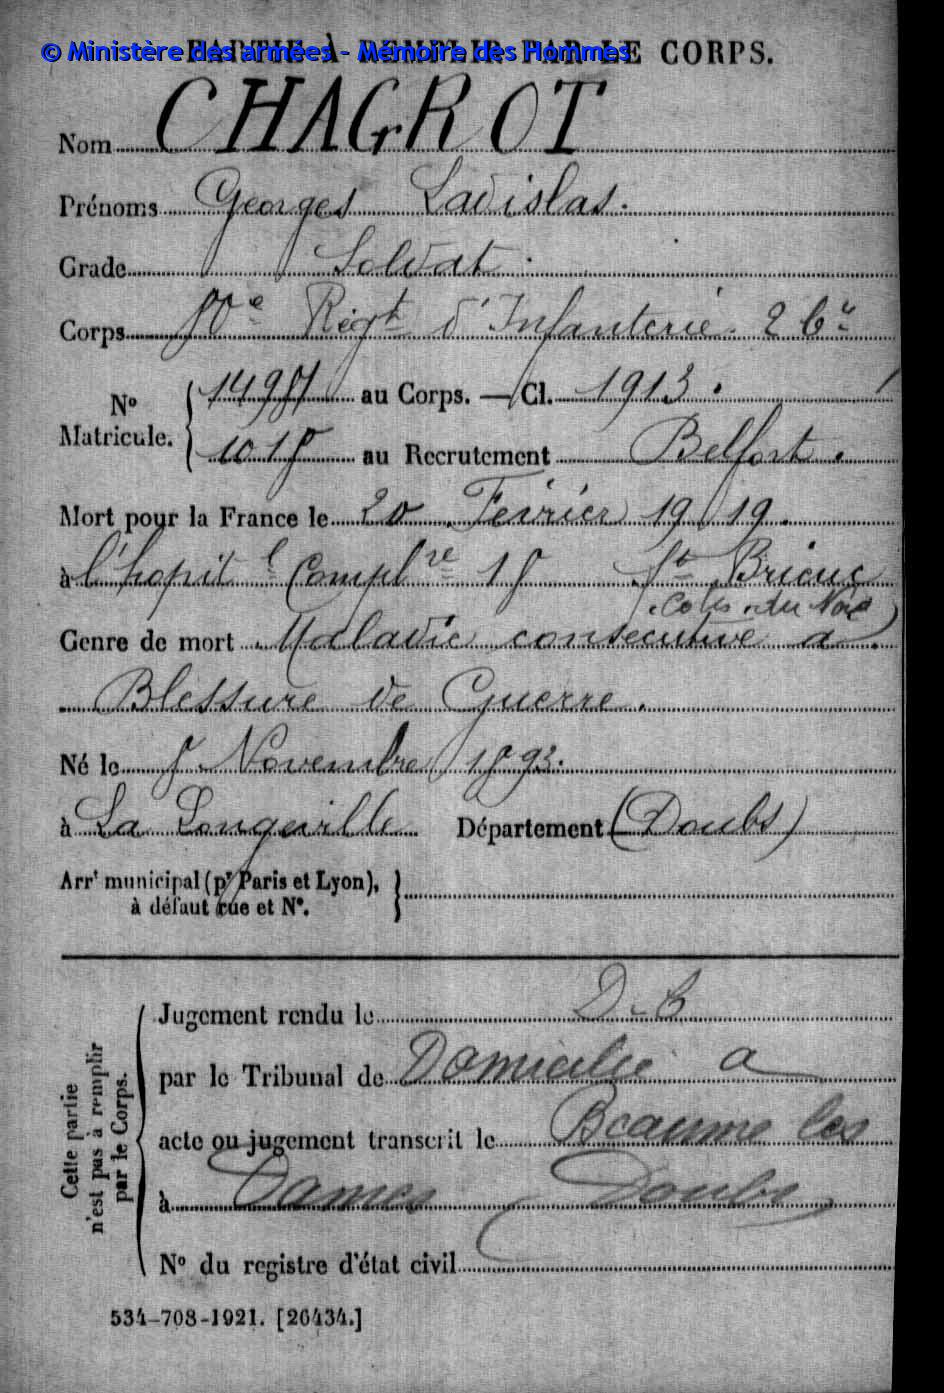 © Ministère des armées - Mémoire des Hommes
PARTIE À REMPLIR PAR LE CORPS.
Nom CHAGROT
Prénoms Georges Ladislas.
Grade Soldat.
Corps Régt d'Infanterie.
Nº Matricule. au Corps. — Cl. 1913.
1018 au Recrutement Belfort.
Mort pour la France le 20 Février 1919.
à l'hopital Complre 18 St Brieuc
Cotes du Nord
Genre de mort Maladie consécutive à
Blessure de Guerre.
Né le 8 Novembre 1893.
à La Longeville Département (Doubs)
Arrt municipal (pr Paris et Lyon),
à défaut rue et Nº.
Cette partie
n'est pas à remplir
par le Corps.
Jugement rendu le
par le Tribunal de Domicilié a
acte ou jugement transcrit le Beaume les
à Dames Doubs
Nº du registre d'état civil
534-708-1921. [26434.]